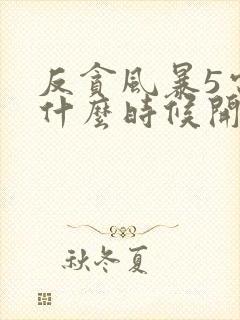 反貪風暴5
什麼時候開
秋冬夏